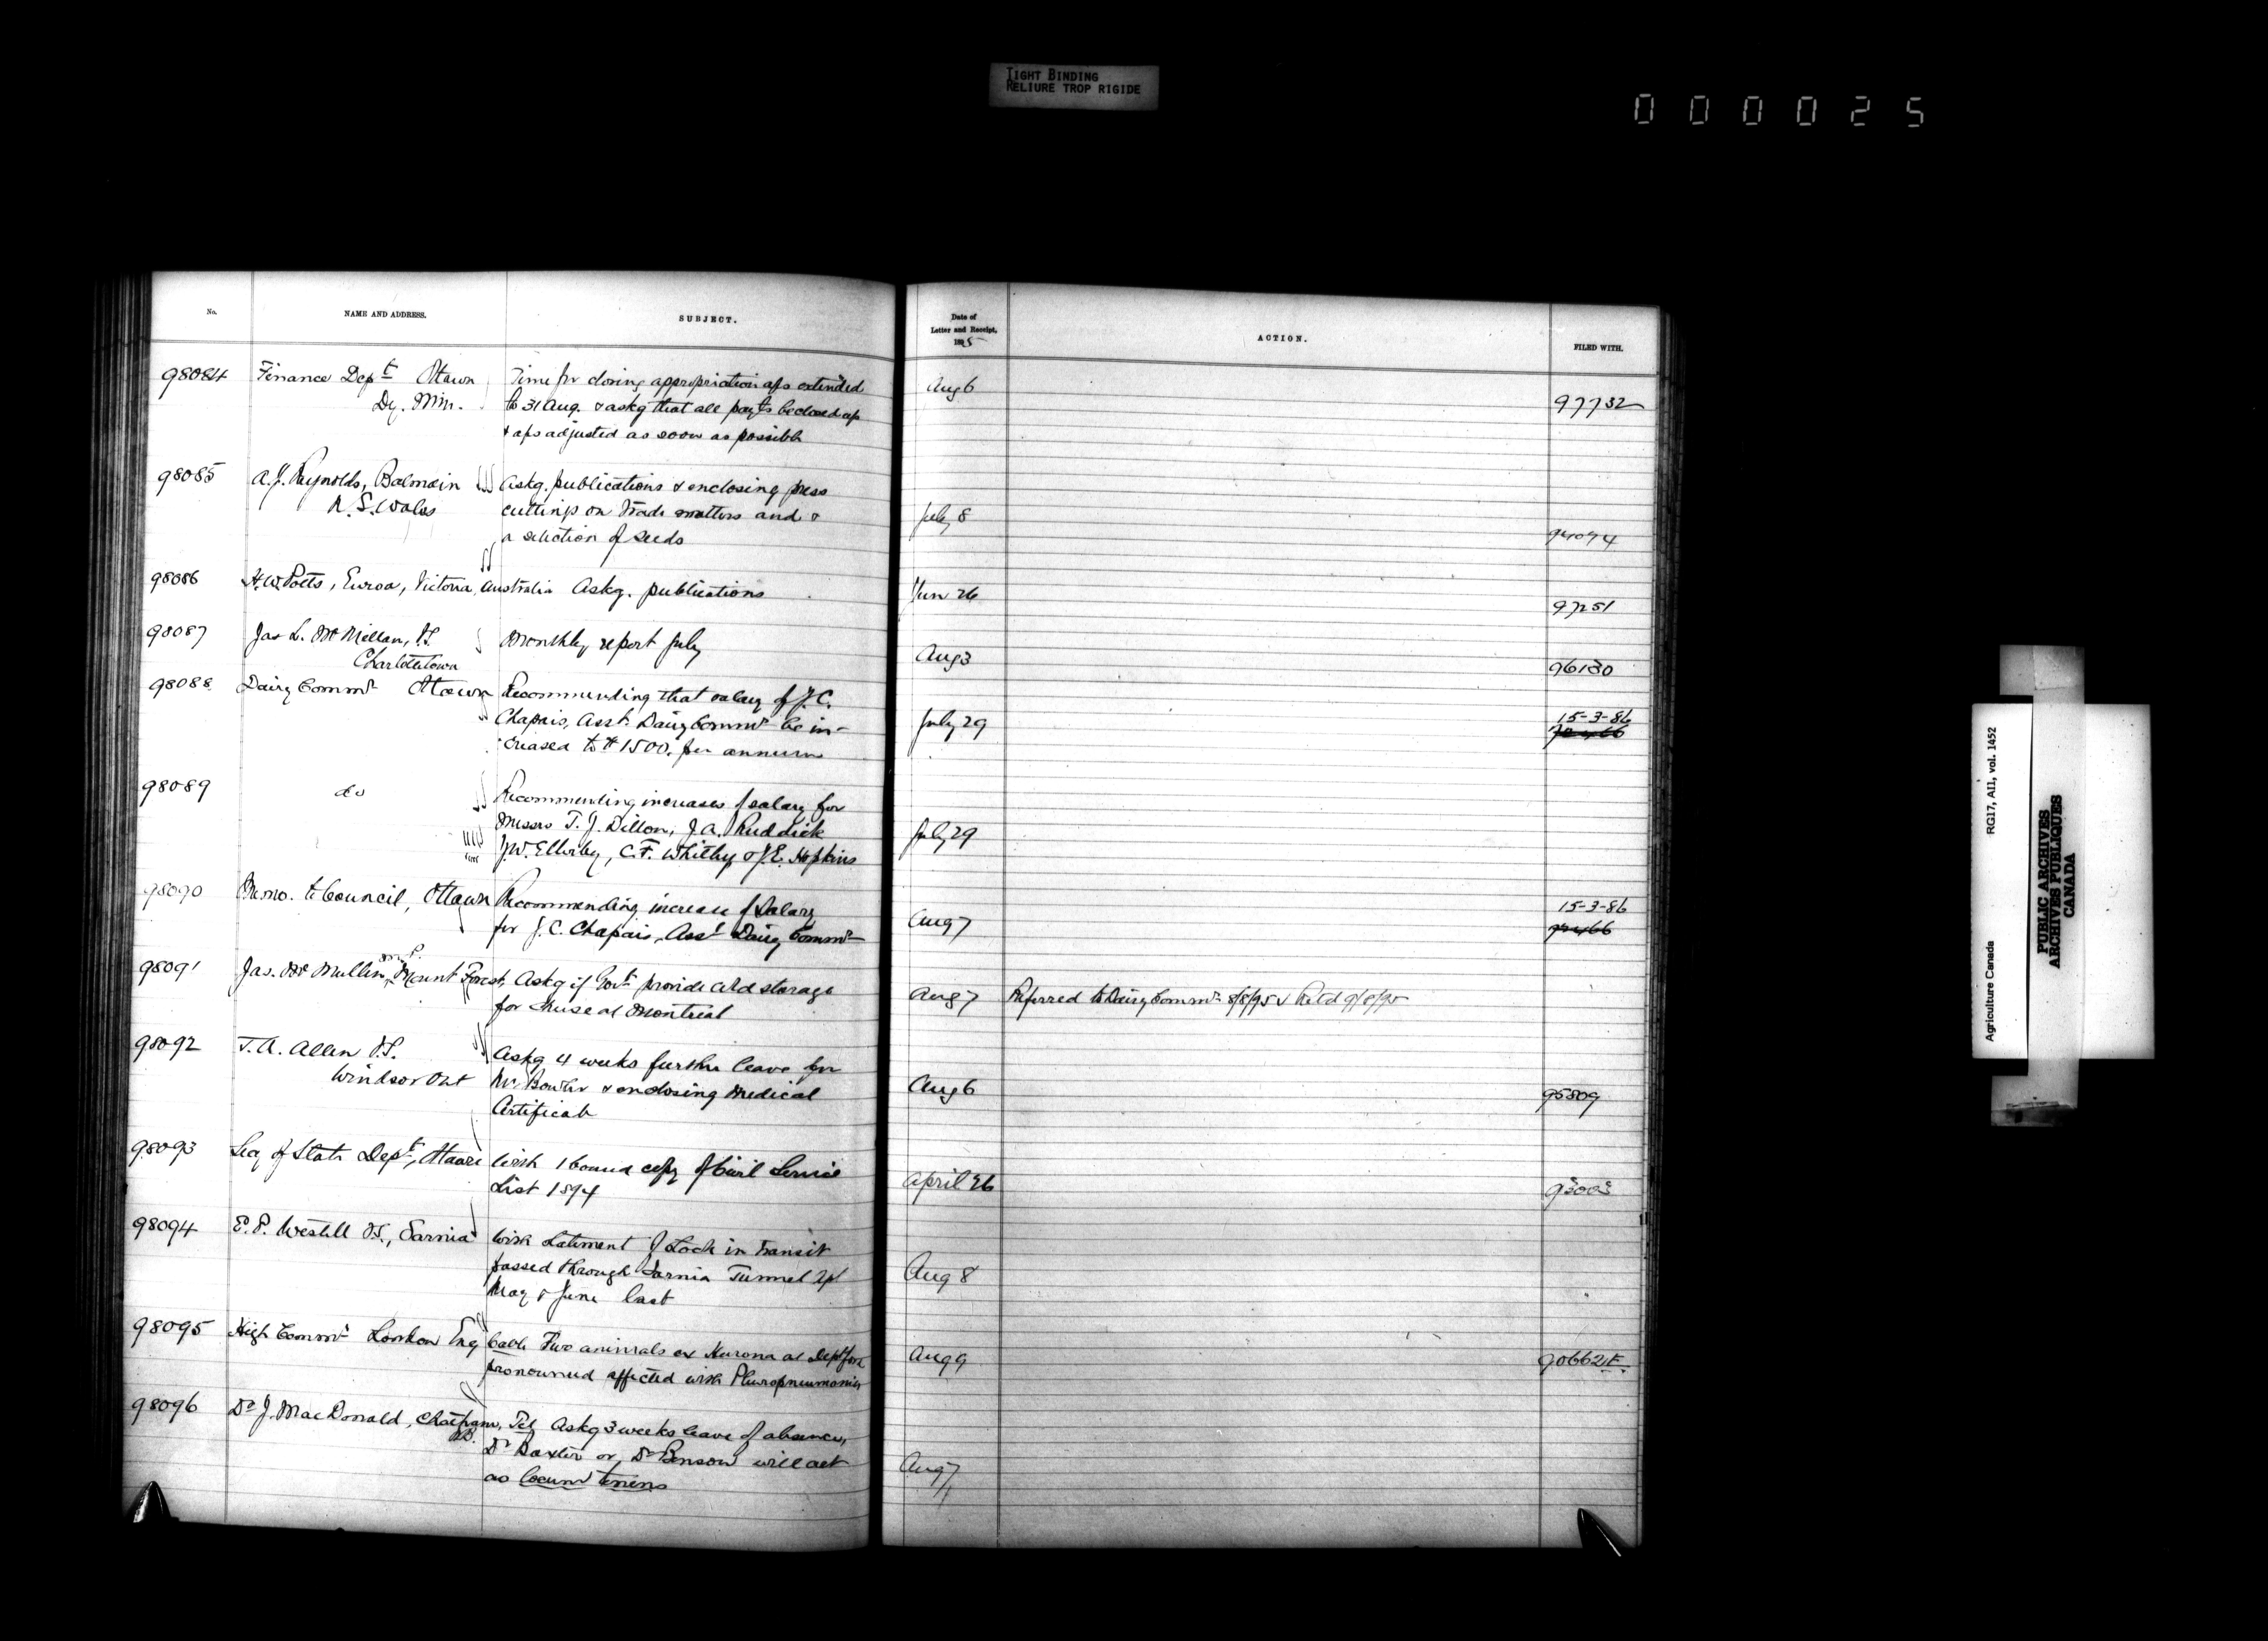 TIGHT BINDING
RELIURE TROP RIGIDE
000025
No. NAME AND ADDRESS. SUBJECT. Date of Letter and Receipt, 1895 ACTION. FILED WITH.
98084 Finance Dept Ottawa Time for closing appropriation a/cs extended Aug 6
Dy. Min. to 31 Aug. & askg that all payts be closed up 97732
& a/cs adjusted as soon as possible
98085 A.J. Reynolds, Balmain Askg. publications & enclosing press
N.S. Wales cuttings on Trade matters and & July 8
a selection of seeds
98086 H.W. Potts, Euroa, Victoria, Australia Askg. publications Jun 26 97251
98087 Jas L. McMillan, Monthly report July
Charlottetown Aug 3 96130
98088 Dairy Commr Ottawa Recommending that salary of J.C.
Chapais, Asst. Dairy Commr be in- July 29 15-3-86
creased to $1500. per annum
98089 do Recommending increases of salary for
Messrs T. J. Dillon, J.A. Ruddick July 29
J.W. Ellerby, C.F. Whitley & J.E. Hopkins
98090 Memo. to Council, Ottawa Recommending increase of Salary 15-3-86
for J.C. Chapais, Asst Dairy Commr Aug 7
98091 Jas. McMullen, M.P. Mount Forest, Askg if Govt. provide cold storage Aug 7 Referred to Dairy Commr 8/8/95 & Retd 9/8/95
for cheese at Montreal
98092 J.A. Allen Askg 4 weeks further leave for
Windsor Ont Mr. Bowler & enclosing Medical Aug 6 95809
Certificate
98093 Secy of State Dept, Ottawa With 1 bound copy of Civil Service
List 1894 April 26 93003
98094 E.P. Westell Sarnia With statement of Stock in Transit
passed through Sarnia Tunnel Apl Aug 8
May & June last
98095 High Commr London Eng Cable Two animals ex Hurona at Deptford Aug 9 90662
pronounced affected with Pleuropneumonia
98096 Dr J. MacDonald, Chatham, Tel Askg 3 weeks leave of absence,
N.B. Dr Baxter or Dr Benson will act Aug 7
as locum tenens
Agriculture Canada RG17, AII, vol. 1452
PUBLIC ARCHIVES
ARCHIVES PUBLIQUES
CANADA